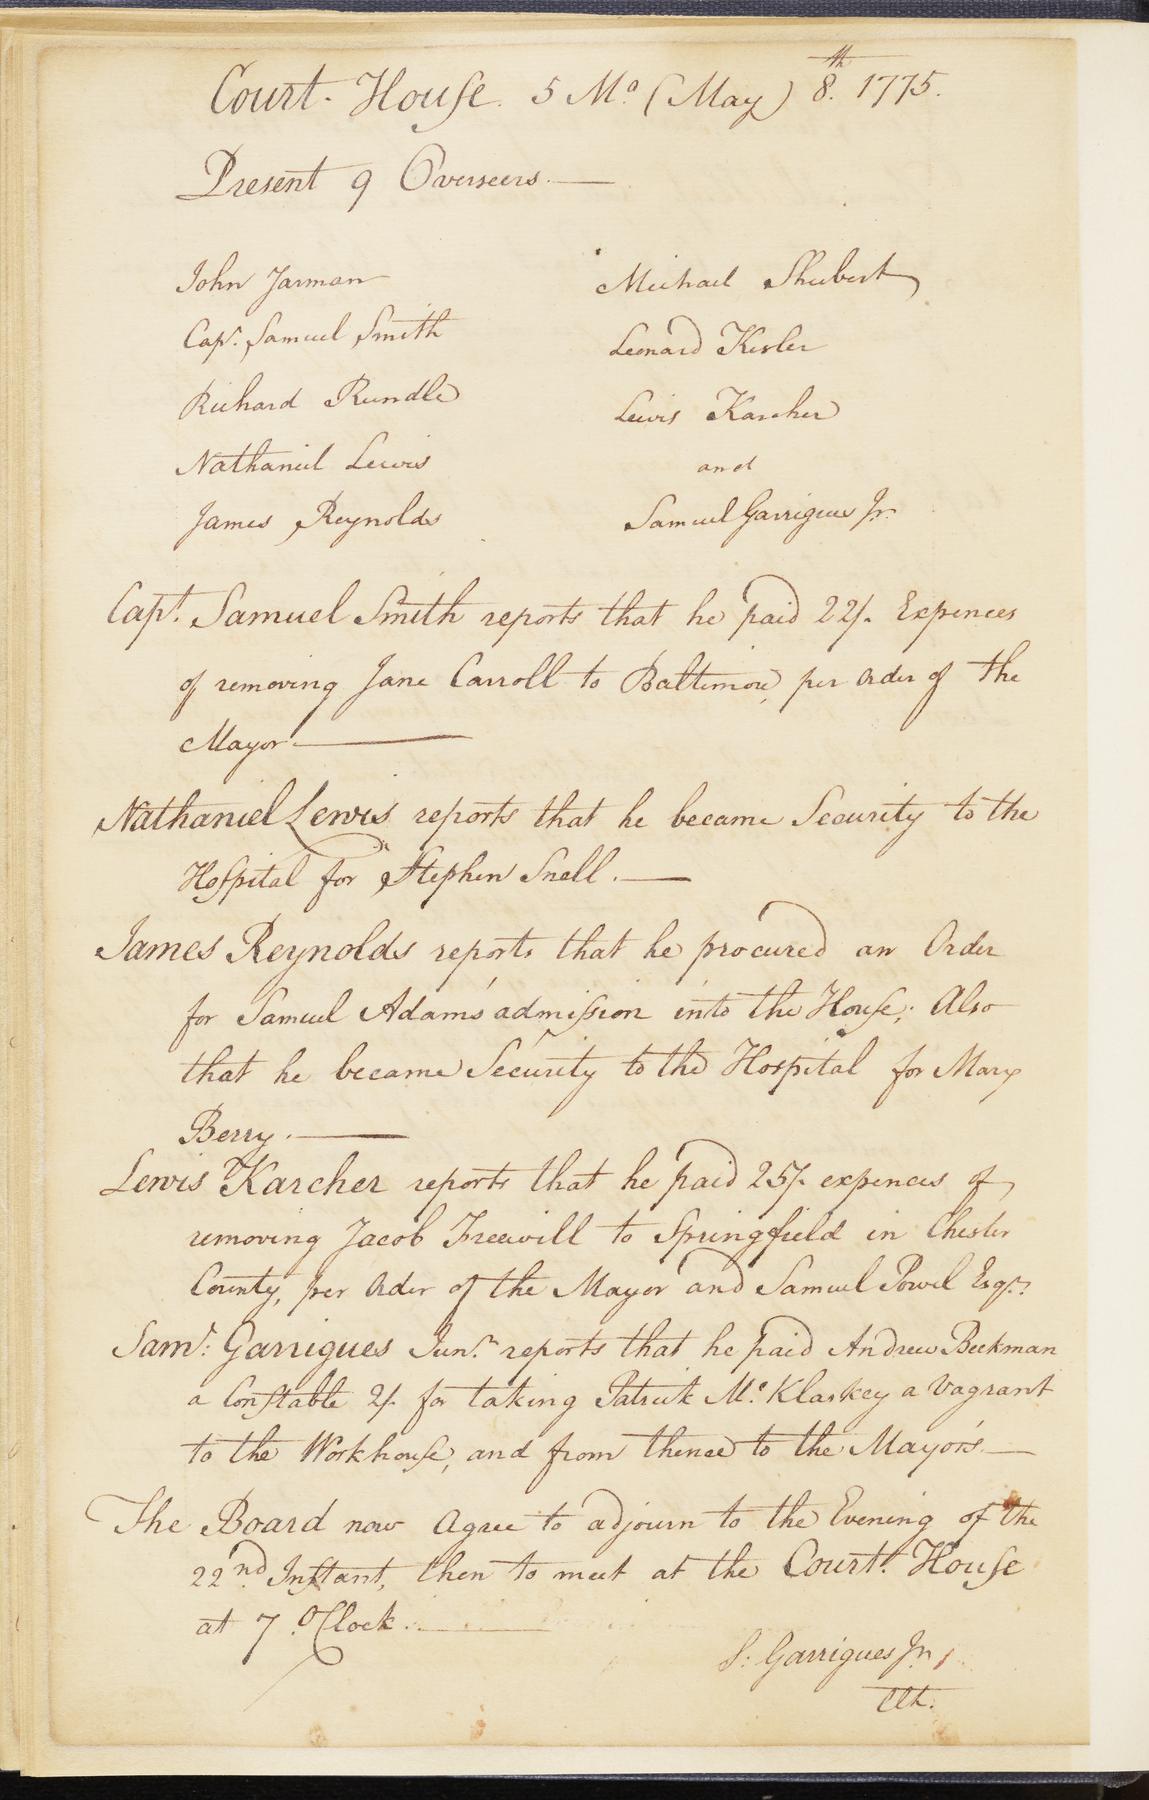 Court-House. 5 Mo. (May) 8.th 1775.
Present 9 Overseers.—
John Jarman
Capt. Samuel Smith
Richard Rundle
Nathaniel Lewis
James Reynolds
Michael Shubert
Leonard Kesler
Lewis Karcher
and
Samuel Garrigues Jr.
Capt. Samuel Smith reports that he paid 22/. Expences
of removing Jane Carroll to Baltimore, per Order of the
Mayor.—
Nathaniel Lewis reports that he became Security to the
Hospital for Stephen Snell.—
James Reynolds reports that he procured an Order
for Samuel Adams' admission into the House; Also
that he became Security to the Hospital for Mary
Berry.—
Lewis Karcher reports that he paid 25/. expences of
removing Jacob Freewill to Springfield in Chester
County, per Order of the Mayor and Samuel Powel Esqr.
Saml. Garrigues Junr. reports that he paid Andrew Beekman
a Constable 2/. for taking Patrick Mc.Klaskey a Vagrant
to the Workhouse, and from thence to the Mayor's.—
The Board now Agree to adjourn to the Evening of the
22nd Instant, then to meet at the Court-House
at 7 O'Clock.
S. Garrigues Jr.
Clk.